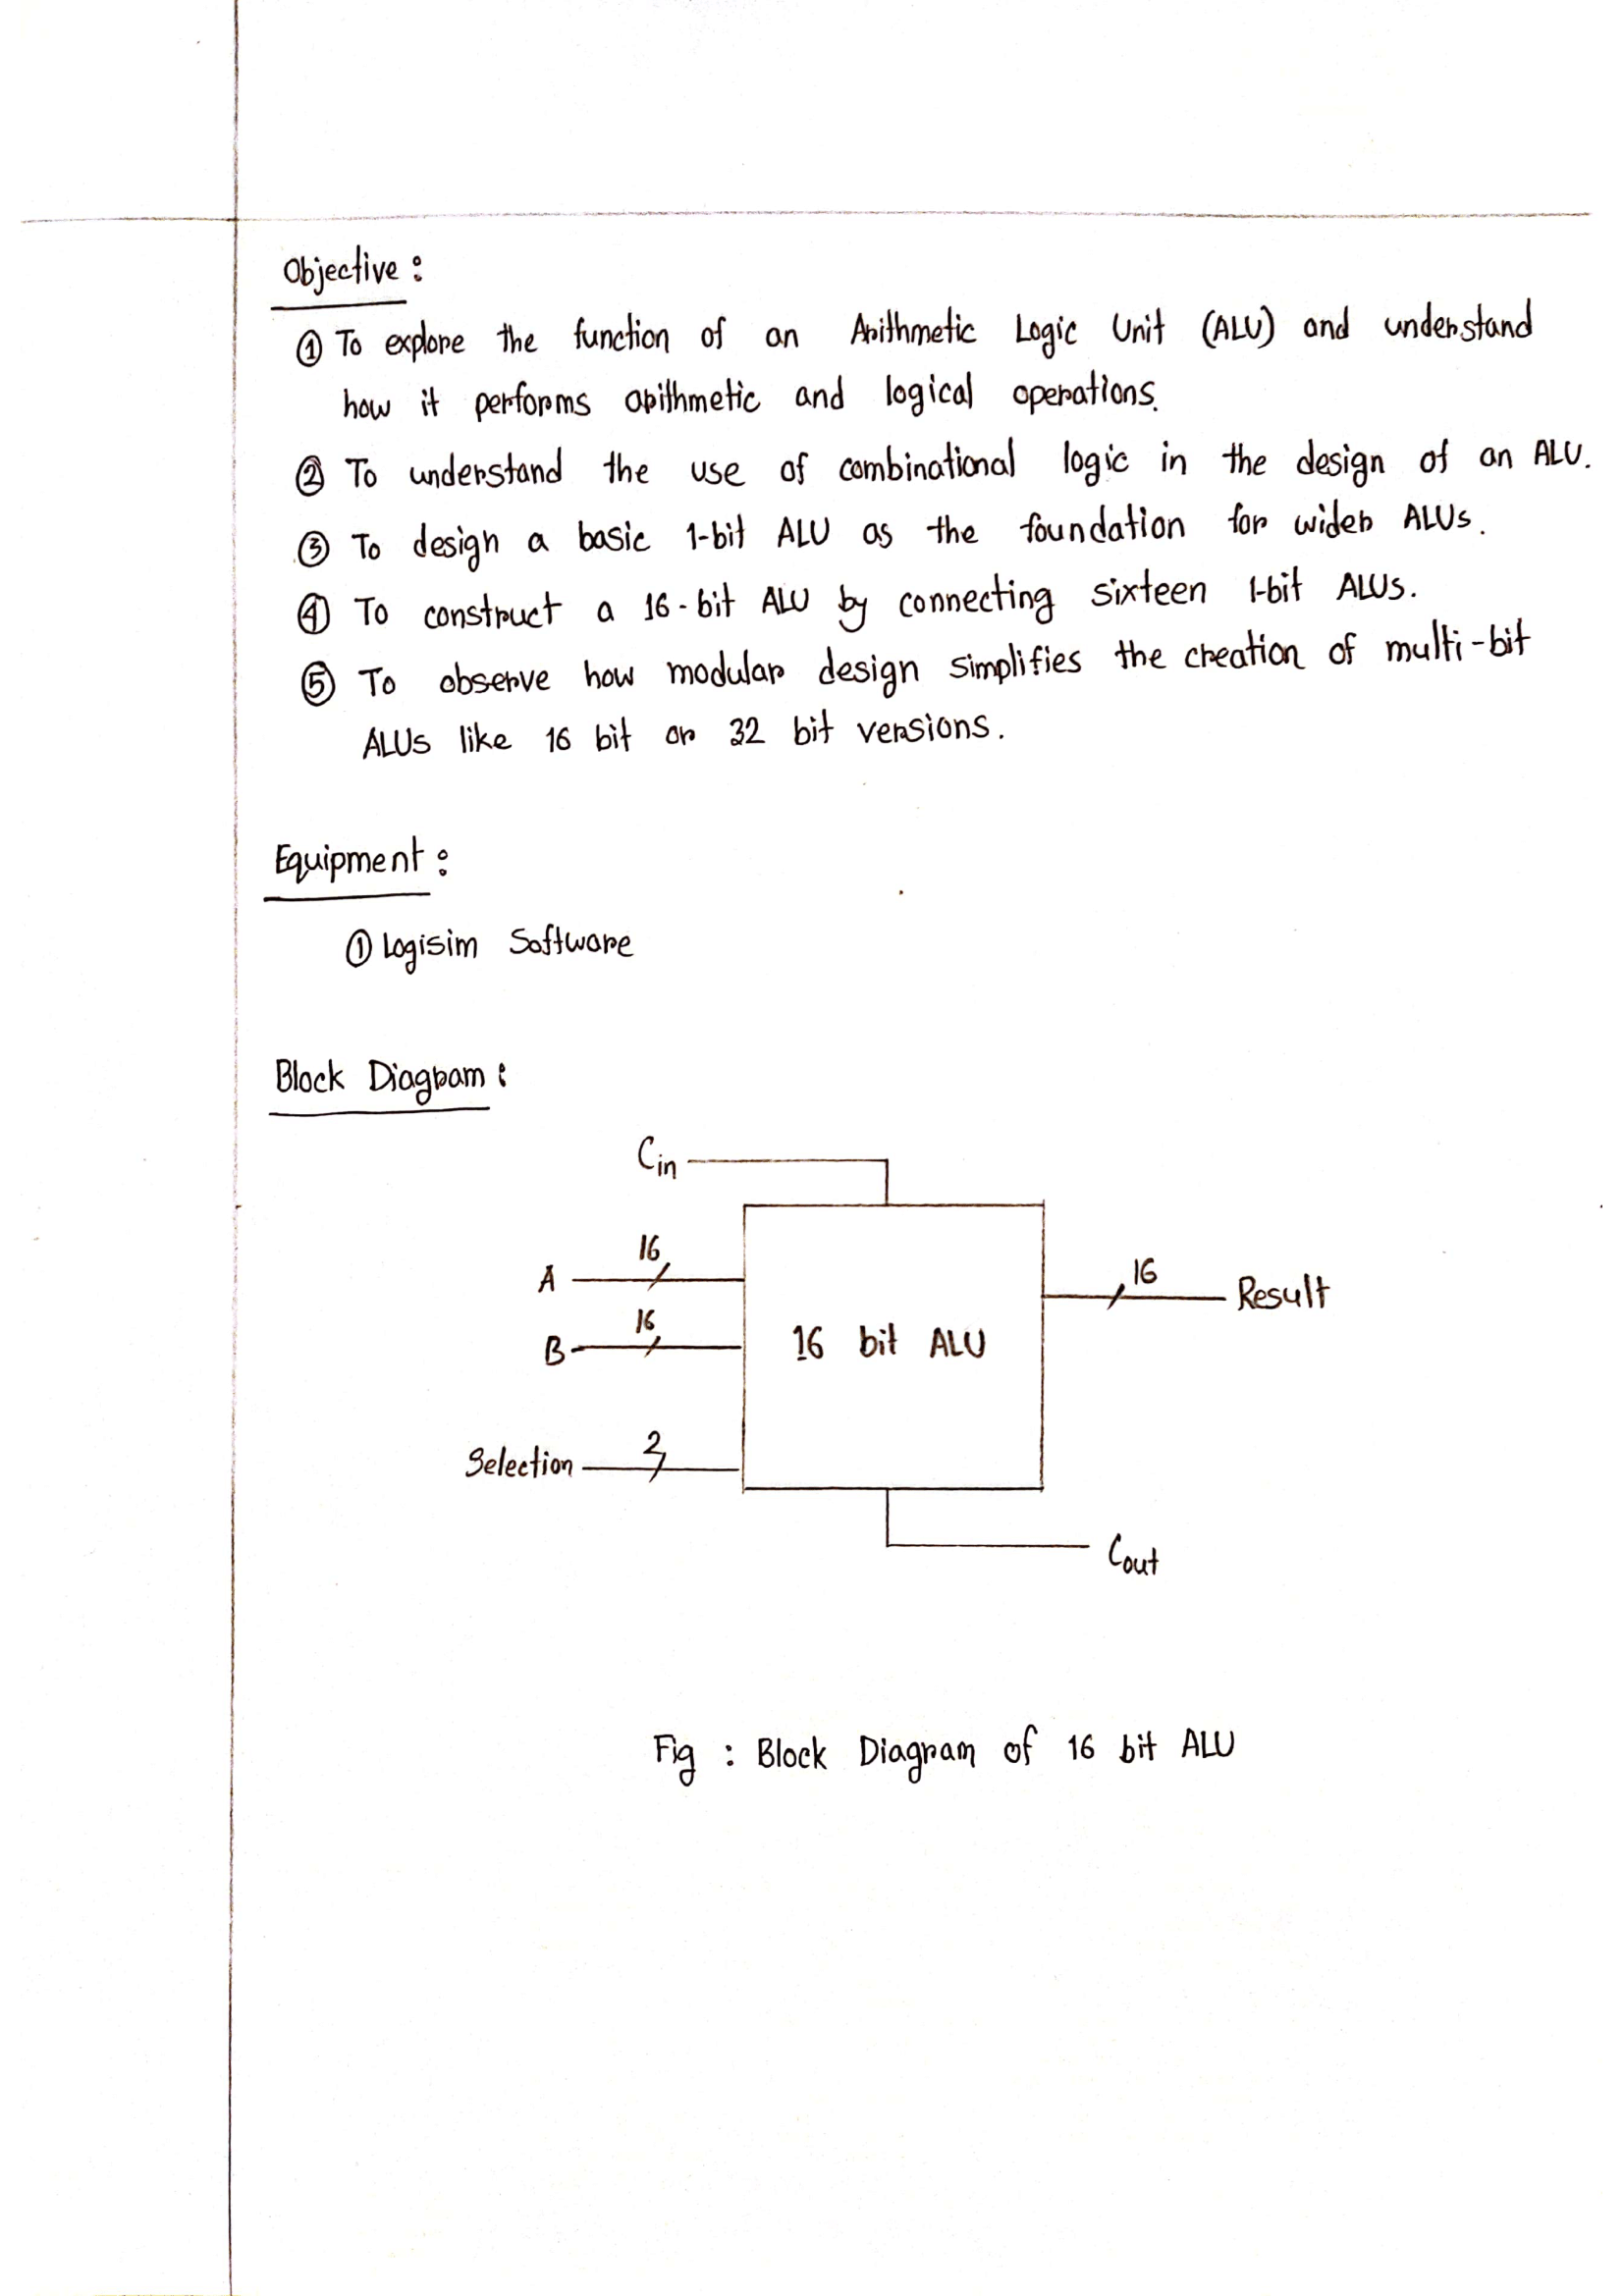 Objective :
① To explore the function of an Arithmetic Logic Unit (ALU) and understand
how it performs arithmetic and logical operations.
② To understand the use of combinational logic in the design of an ALU.
③ To design a basic 1-bit ALU as the foundation for wider ALUs.
④ To construct a 16-bit ALU by connecting sixteen 1-bit ALUs.
⑤ To observe how modular design simplifies the creation of multi-bit
ALUs like 16 bit or 32 bit versions.
Equipment :
① Logisim Software
Block Diagram :
Cin
16
A
16
Result
16
B
16 bit ALU
2
Selection
Cout
Fig : Block Diagram of 16 bit ALU